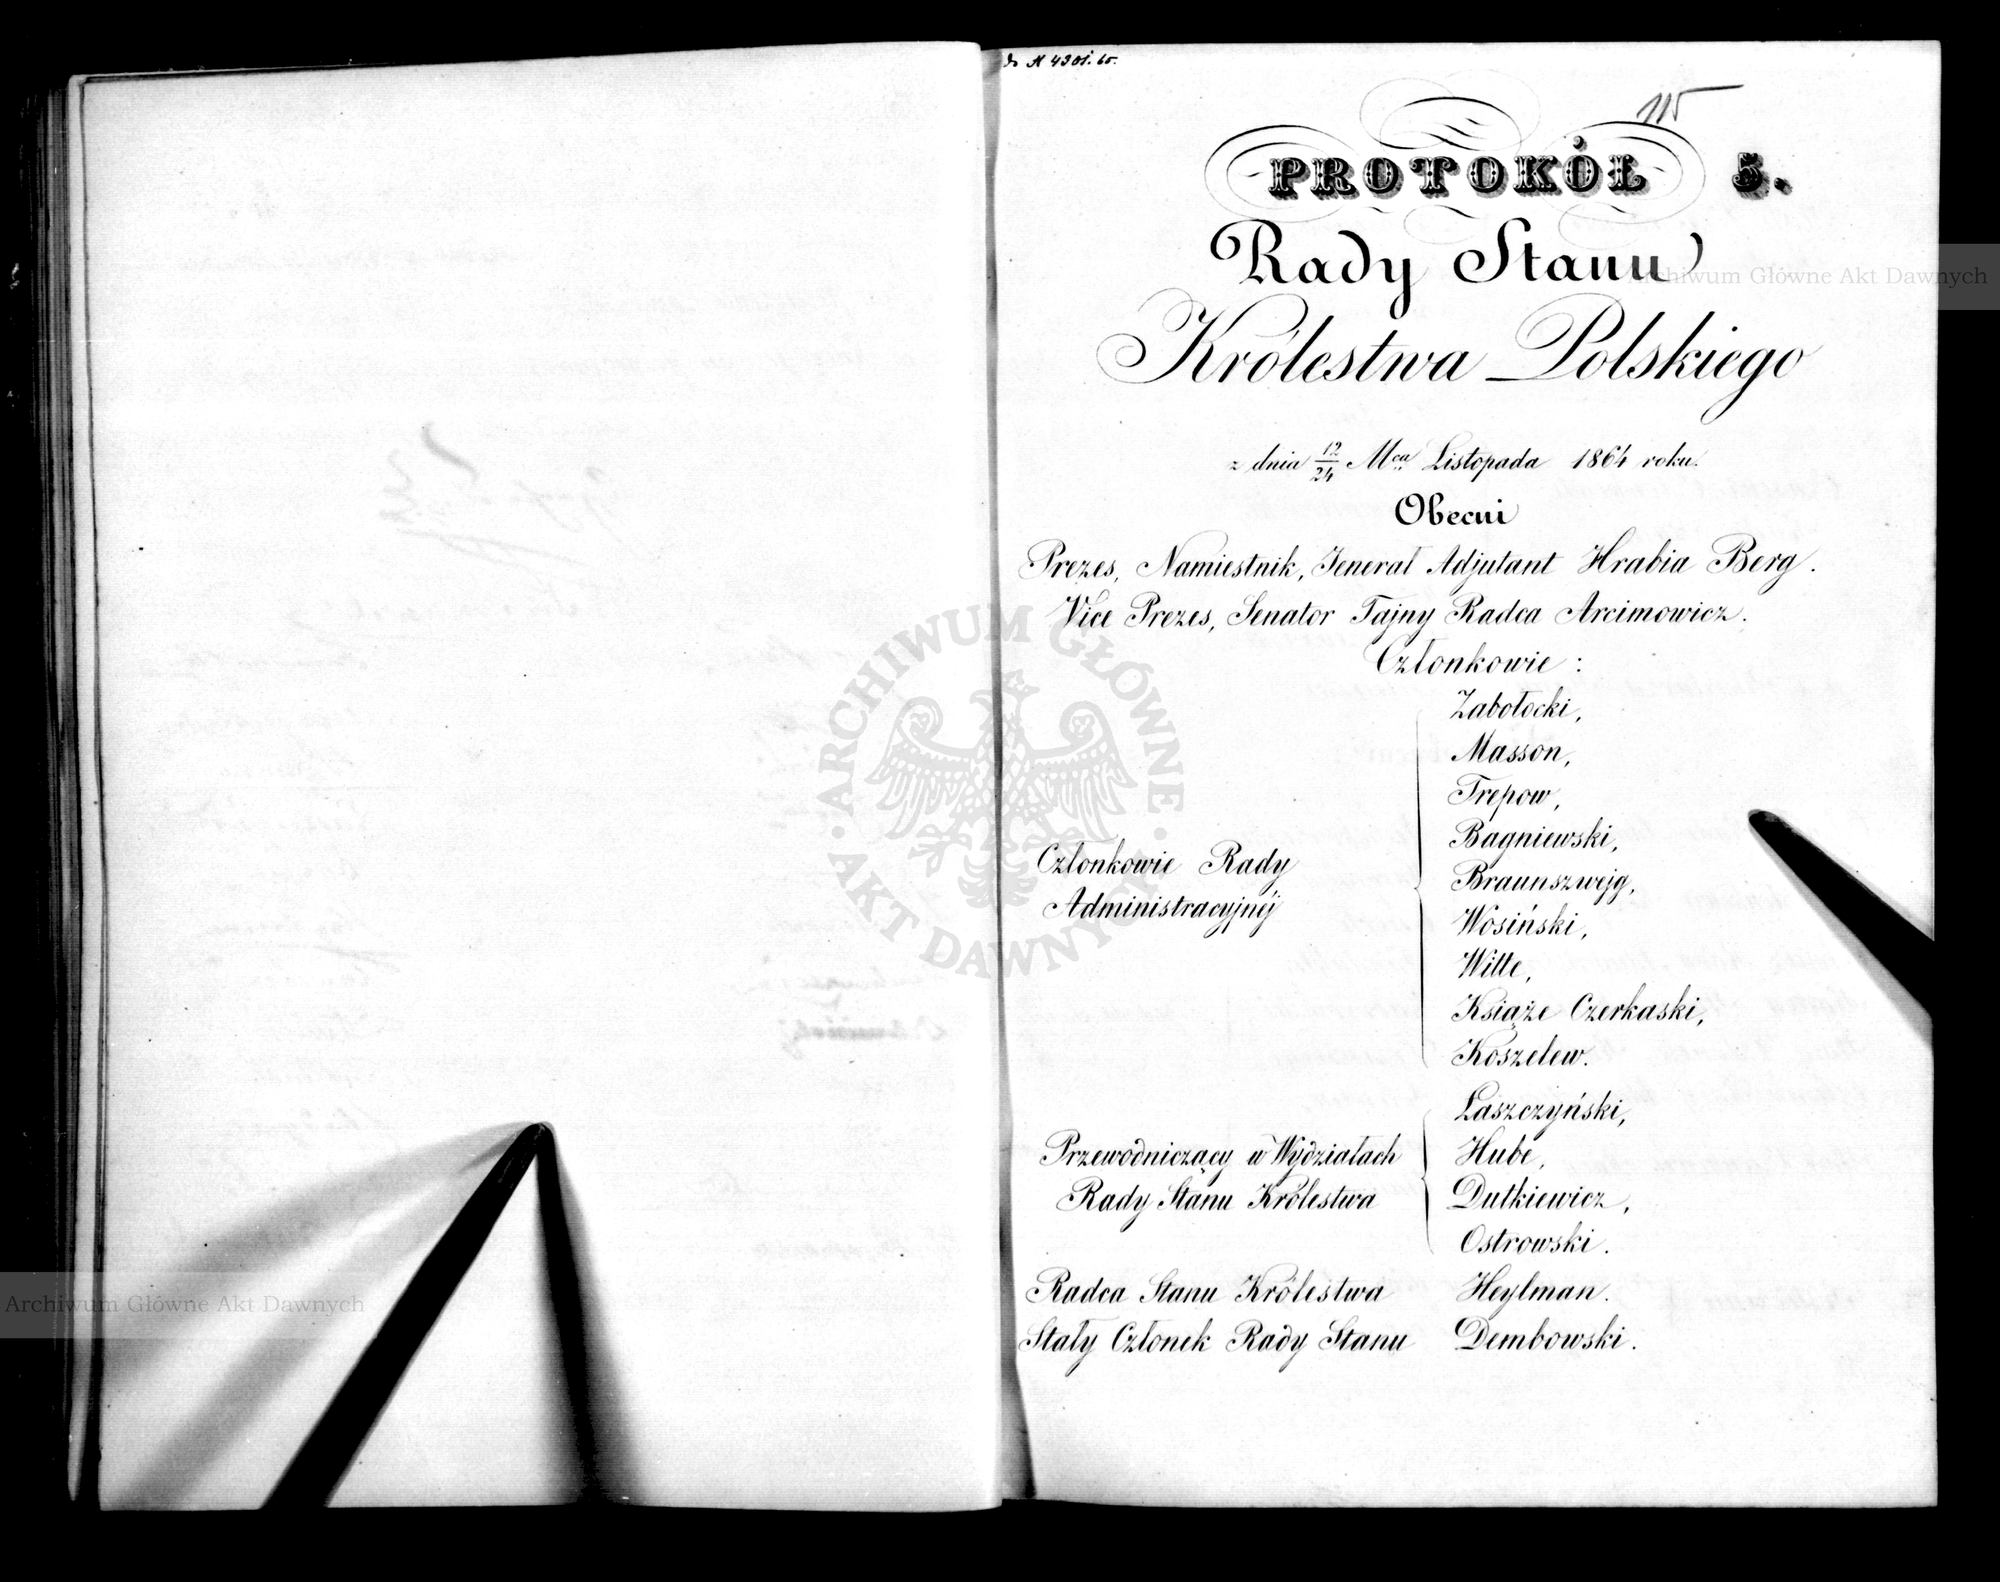 do N 4301. 65.
115
PROTOKÓŁ 5.
Rady Stanu
Królestwa Polskiego
z dnia 12/24 Mca Listopada 1864 roku.
Obecni
Prezes, Namiestnik, Jenerał Adjutant Hrabia Berg.
Vice Prezes, Senator Tajny Radca Arcimowicz.
Członkowie:
Zabołocki,
Masson,
Trepow,
Bagniewski,
Członkowie Rady
Administracyjnéj
Braunszwejg,
Wosiński,
Witte,
Książe Czerkaski,
Koszelew.
Łaszczyński,
Przewodniczący w Wydziałach
Rady Stanu Królestwa
Hube,
Dutkiewicz,
Ostrowski.
Radca Stanu Królestwa Heylman.
Stały Członek Rady Stanu Dembowski.
Archiwum Główne Akt Dawnych
ARCHIWUM GŁÓWNE AKT DAWNYCH
Archiwum Główne Akt Dawnych